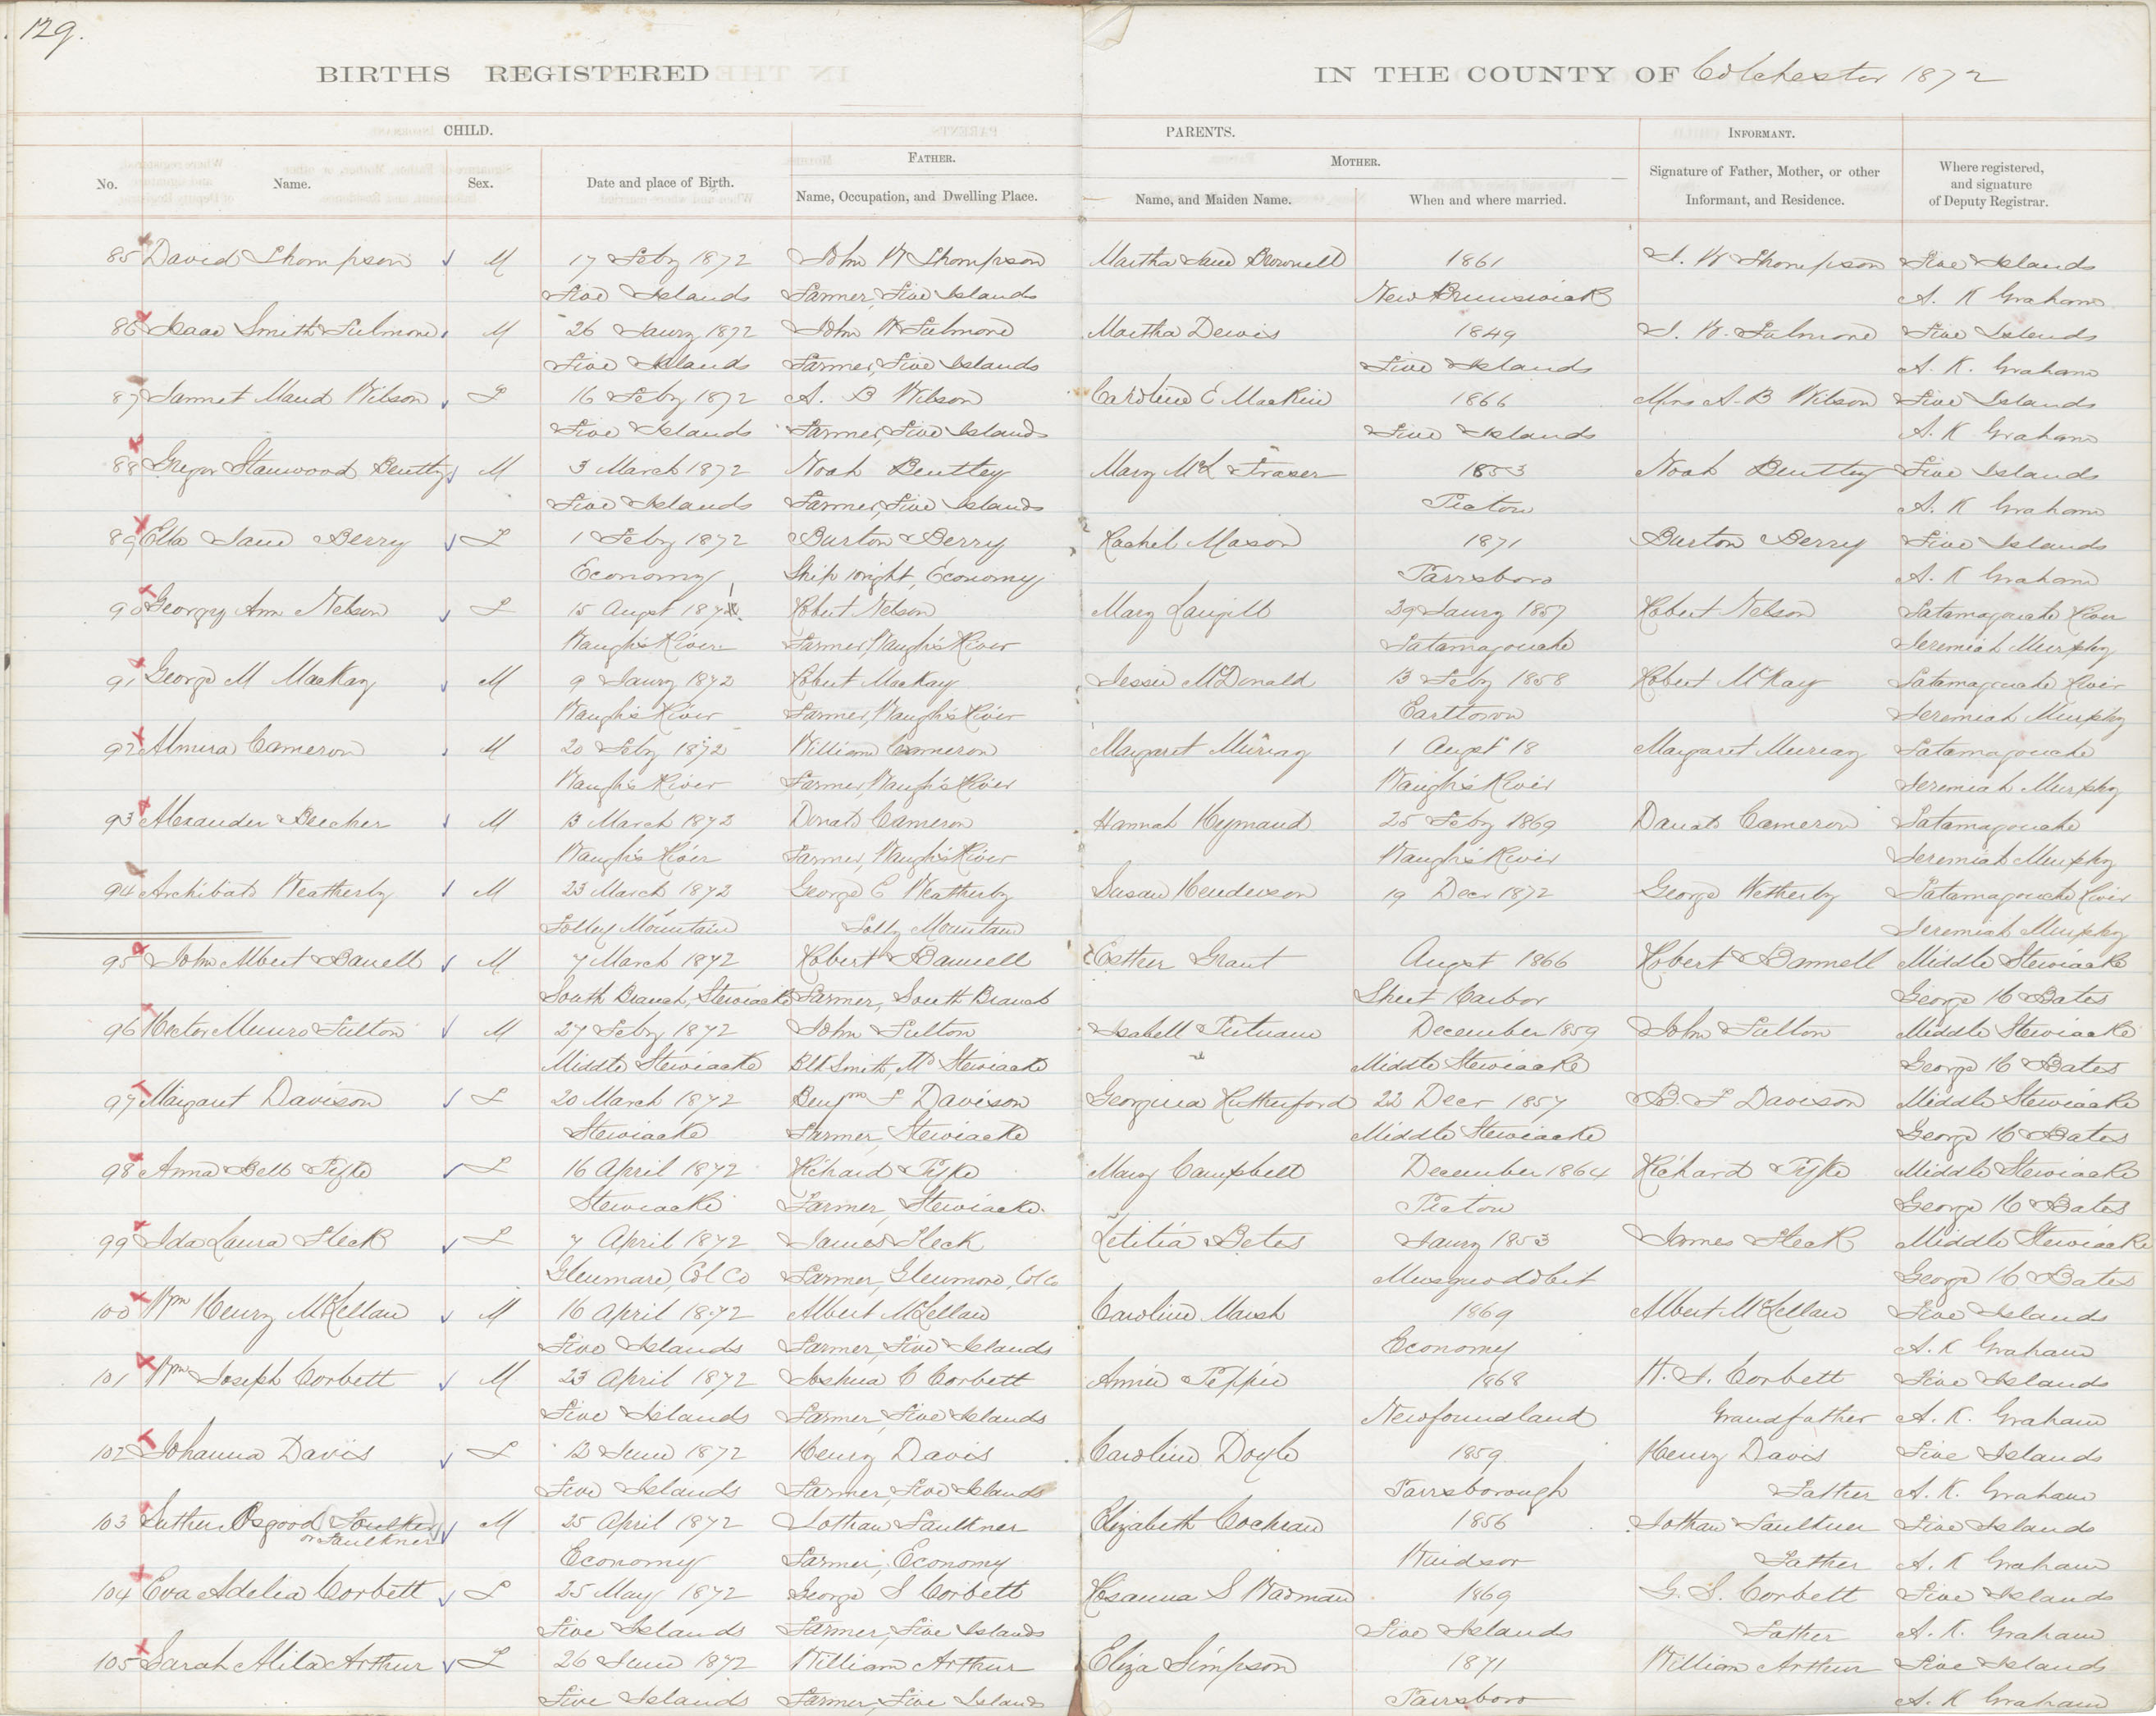 129.
BIRTHS REGISTERED IN THE COUNTY OF Colchester 1872
CHILD. PARENTS. INFORMANT.
FATHER. MOTHER.
No. Name. Sex. Date and place of Birth. Name, Occupation, and Dwelling Place. Name, and Maiden Name. When and where married. Signature of Father, Mother, or other Informant, and Residence. Where registered, and signature of Deputy Registrar.
85 David Thompson M 17 Feby 1872 John W Thompson Martha Jane Brownell 1861 J. W Thompson Five Islands
Five Islands Farmer, Five Islands New Brunswick A. K Graham
86 Isaac Smith Fulmore M 26 Jaury 1872 John W Fulmore Martha Dewis 1849 J. W. Fulmore Five Islands
Five Islands Farmer, Five Islands Five Islands A. K. Graham
87 Jannet Maud Wilson F 16 Feby 1872 A. B Wilson Caroline E MacKin 1866 Mrs A. B Wilson Five Islands
Five Islands Farmer, Five Islands Five Islands A. K Graham
88 Gregor Stanwood Bentley M 3 March 1872 Noah Bentley Mary McL Fraser 1853 Noah Bentley Five Islands
Five Islands Farmer, Five Islands Pictou A. K Graham
89 Ella Jane Berry F 1 Feby 1872 Burton Berry Rachel Mason 1871 Burton Berry Five Islands
Economy Ship wright, Economy Parrsboro A. K Graham
90 Georgy Ann Nelson F 15 Augst 1871 Robert Nelson Mary Langill 29 Jaury 1857 Robert Nelson Tatamagouche River
Waugh's River Farmer, Waugh's River Tatamagouche Jeremiah Murphy
91 George M MacKay M 9 Jaury 1872 Robert MacKay Jessie McDonald 13 Feby 1858 Robert McKay Tatamagouche River
Waugh's River Farmer, Waugh's River Earltown Jeremiah Murphy
92 Almira Cameron M 20 Feby 1872 William Cameron Margaret Murray 1 Augst 18 Margaret Murray Tatamagouche
Waugh's River Farmer, Waugh's River Waugh's River Jeremiah Murphy
93 Alexander Beecher M 13 March 1872 Donald Cameron Hannah Hymand 25 Feby 1869 Donald Cameron Tatamagouche
Waugh's River Farmer, Waugh's River Waugh's River Jeremiah Murphy
94 Archibald Weatherby M 23 March 1872 George E Weatherby Susan Henderson 19 Decr 1872 George Wetherby Tatamagouche River
Folley Mountain Folly Mountain Jeremiah Murphy
95 John Albert Banell M 7 March 1872 Robert Bannell Esther Grant Augst 1866 Robert Bannell Middle Stewiacke
South Branch, Stewiacke Farmer, South Branch Sheet Harbor George H Bates
96 Hector Munro Fulton M 27 Feby 1872 John Fulton Isabell Putnam December 1859 John Fulton Middle Stewiacke
Middle Stewiacke Blk Smith, M. Stewiacke Middle Stewiacke George H Bates
97 Margaret Davison F 20 March 1872 Benjm F Davison Georgina Rutherford 22 Decr 1857 B. F Davison Middle Stewiacke
Stewiacke Farmer, Stewiacke Middle Stewiacke George H Bates
98 Anna Bell Fifke F 16 April 1872 Richard Fifke Mary Campbell December 1864 Richard Fifke Middle Stewiacke
Stewiacke Farmer, Stewiacke Pictou George H Bates
99 Ida Laura Fleck F 7 April 1872 James Fleck Letitia Betes Jaury 1853 James Fleck Middle Stewiacke
Glenmore, Col Co Farmer, Glenmore, Col Co Musquodobit George H Bates
100 Wm Henry McLellan M 16 April 1872 Albert McLellan Caroline Marsh 1869 Albert McLellan Five Islands
Five Islands Farmer, Five Islands Economy A. K Graham
101 Wm Joseph Corbett M 23 April 1872 Joshua C Corbett Annie Peppie 1868 W. J. Corbett Five Islands
Five Islands Farmer, Five Islands Newfoundland Grandfather A. K. Graham
102 Johanna Davis F 13 June 1872 Henry Davis Caroline Doyle 1859 Henry Davis Five Islands
Five Islands Farmer, Five Islands Parrsborough Father A. K. Graham
103 Luther Osgood (Foulker) M 25 April 1872 Jotham Faulkner Elizabeth Cochran 1856 Jotham Faulkner Five Islands
or Faulkner Economy Farmer, Economy Windsor Father A. K Graham
104 Eva Adelia Corbett F 25 May 1872 George S Corbett Rosanna S Wadman 1869 G. S. Corbett Five Islands
Five Islands Farmer, Five Islands Five Islands Father A. K. Graham
105 Sarah Alila Arthur F 26 June 1872 William Arthur Eliza Simpson 1871 William Arthur Five Islands
Five Islands Farmer, Five Islands Parrsboro A. K Graham